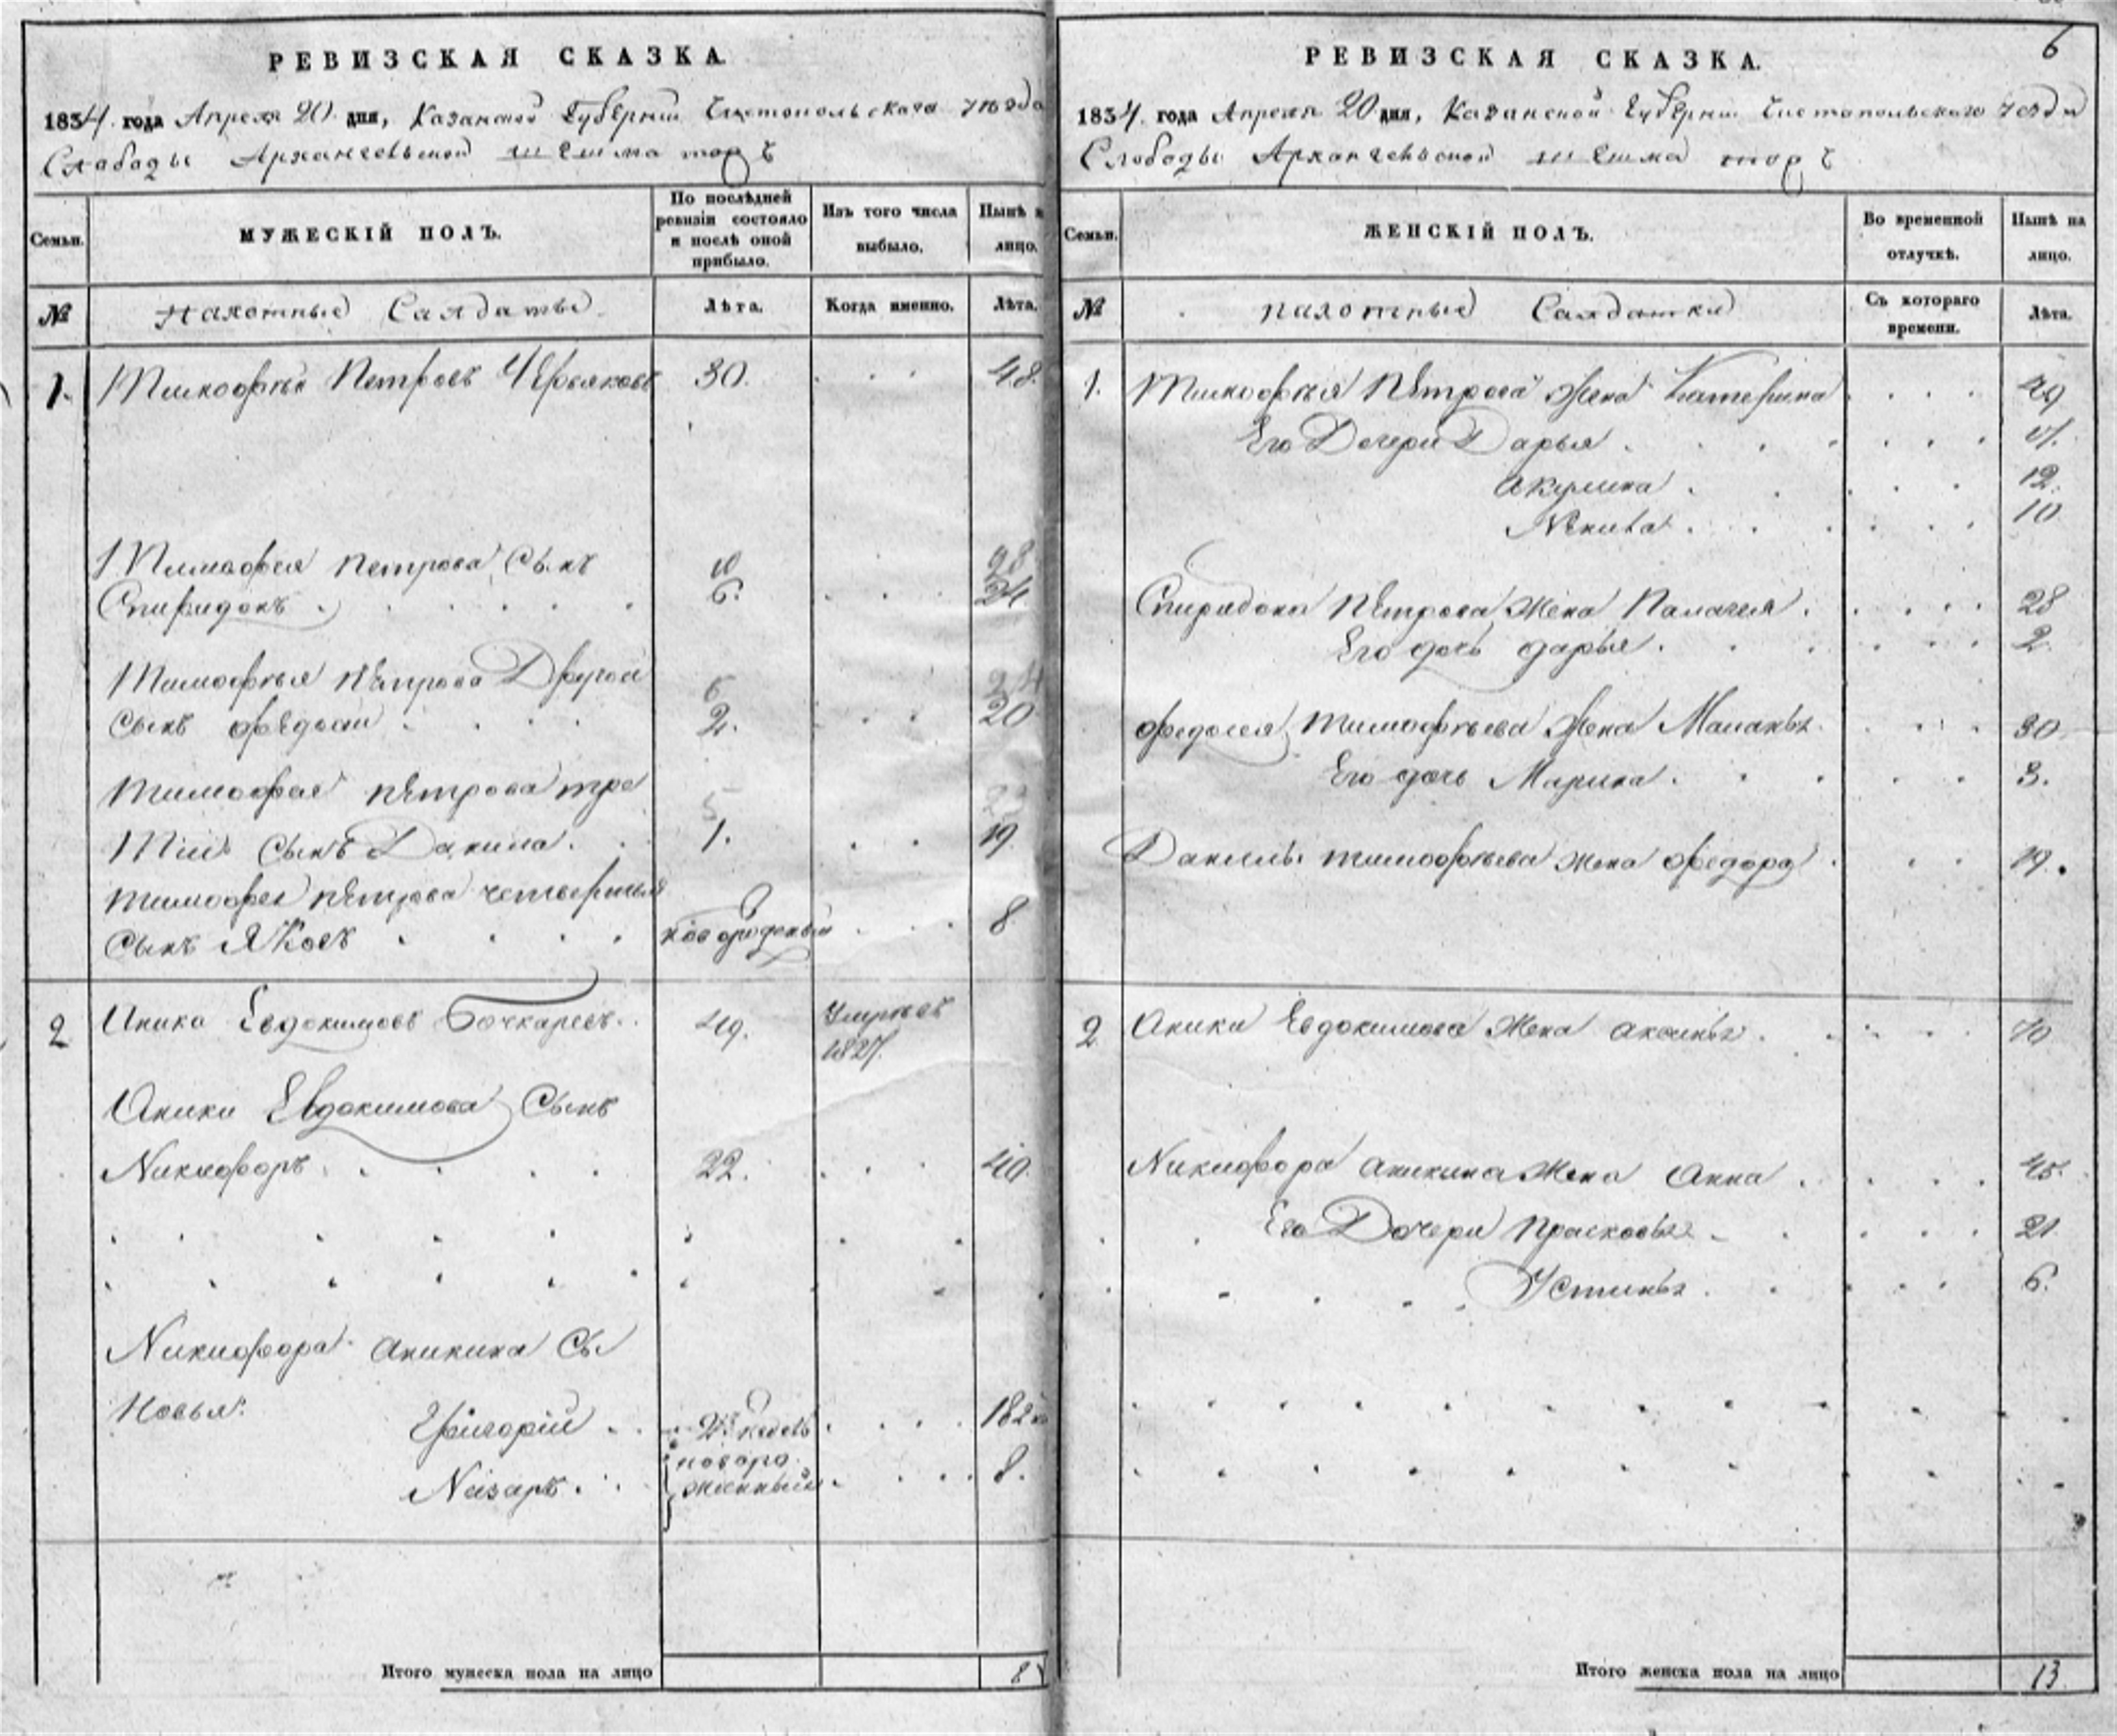 РЕВИЗСКАЯ СКАЗКА.
1834. года Апреля 20. дня, Казанской Губернии Чистопольскаго уѣзда
Слабады Архангельской
Семьи.
МУЖЕСКІЙ ПОЛЪ.
По послѣдней ревизіи состояло и послѣ оной прибыло.
Изъ того числа выбыло.
Нынѣ на лицо.
№
Пахотные Салдаты
Лѣта.
Когда именно.
Лѣта.
1. Тимофѣй Петровъ 30. 48.
Тимофея Петрова Сынъ 10 28
Спиридонъ 6. 24
Тимофѣя Петрова Другой 6 24
сынъ федосей 2. 20
Тимофея петрова тре 5 23
тій сынъ Данила. 1. 19
тимофея петрова четвертый
Сынъ Яковъ новорожденый 8
2 Аника Евдокимовъ Бочкаревъ. 49. Умиръ въ
1827.
Аники Евдокимова Сынъ
Никифоръ 22. 40.
Никифора Аникина Сы
новья:
Григорій 2 недель 18
Назаръ. новоро
жденный 8.
Итого мужеска пола на лицо 8
6
РЕВИЗСКАЯ СКАЗКА.
1834. года Апреля 20 дня, Казанской Губернии Чистопольскаго уезда
Слободы Архангельской
Семьи.
ЖЕНСКІЙ ПОЛЪ.
Во временной отлучкѣ.
Нынѣ на лицо.
№
пахотные Салдатки
Съ котораго времени.
Лѣта.
1. Тимофѣя Петрова Жена Катерина 49
Его Дочери Дарья 17.
Акулина 12.
10
Спиридона Петрова Жена Палагея 28
Его дочь дарья. 2.
федосея Тимофѣева Жена Маланья 30
Его дочь Марина. 3.
Данилы тимофѣева жена федора 19.
2 Аники Евдокимова Жена аксинья 70
Никифора Аникина Жена Анна 45.
Его Дочери Прасковья 21
Устинья 6.
Итого женска пола на лицо 13